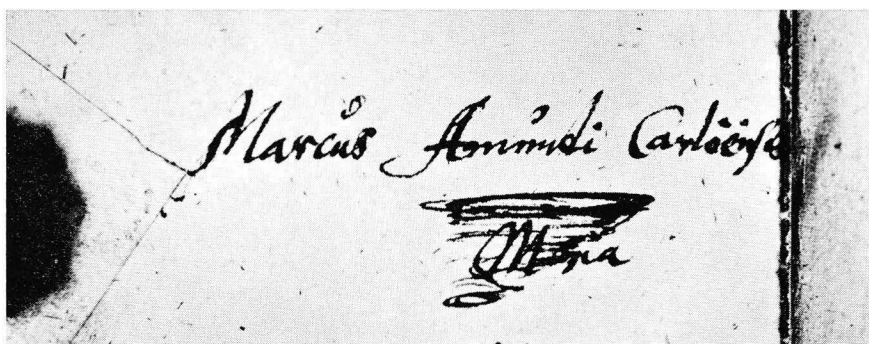 Marcus Amundi Carlöensis
Mpria